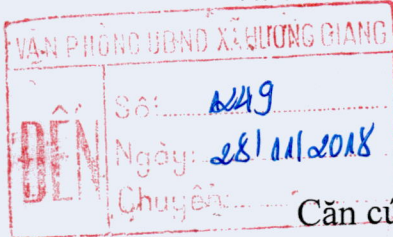 VĂN PHÒNG UBND XÃ HƯƠNG GIANG
ĐẾN
Số: 1249
Ngày: 28/11/2018
Chuyển:
Căn cứ